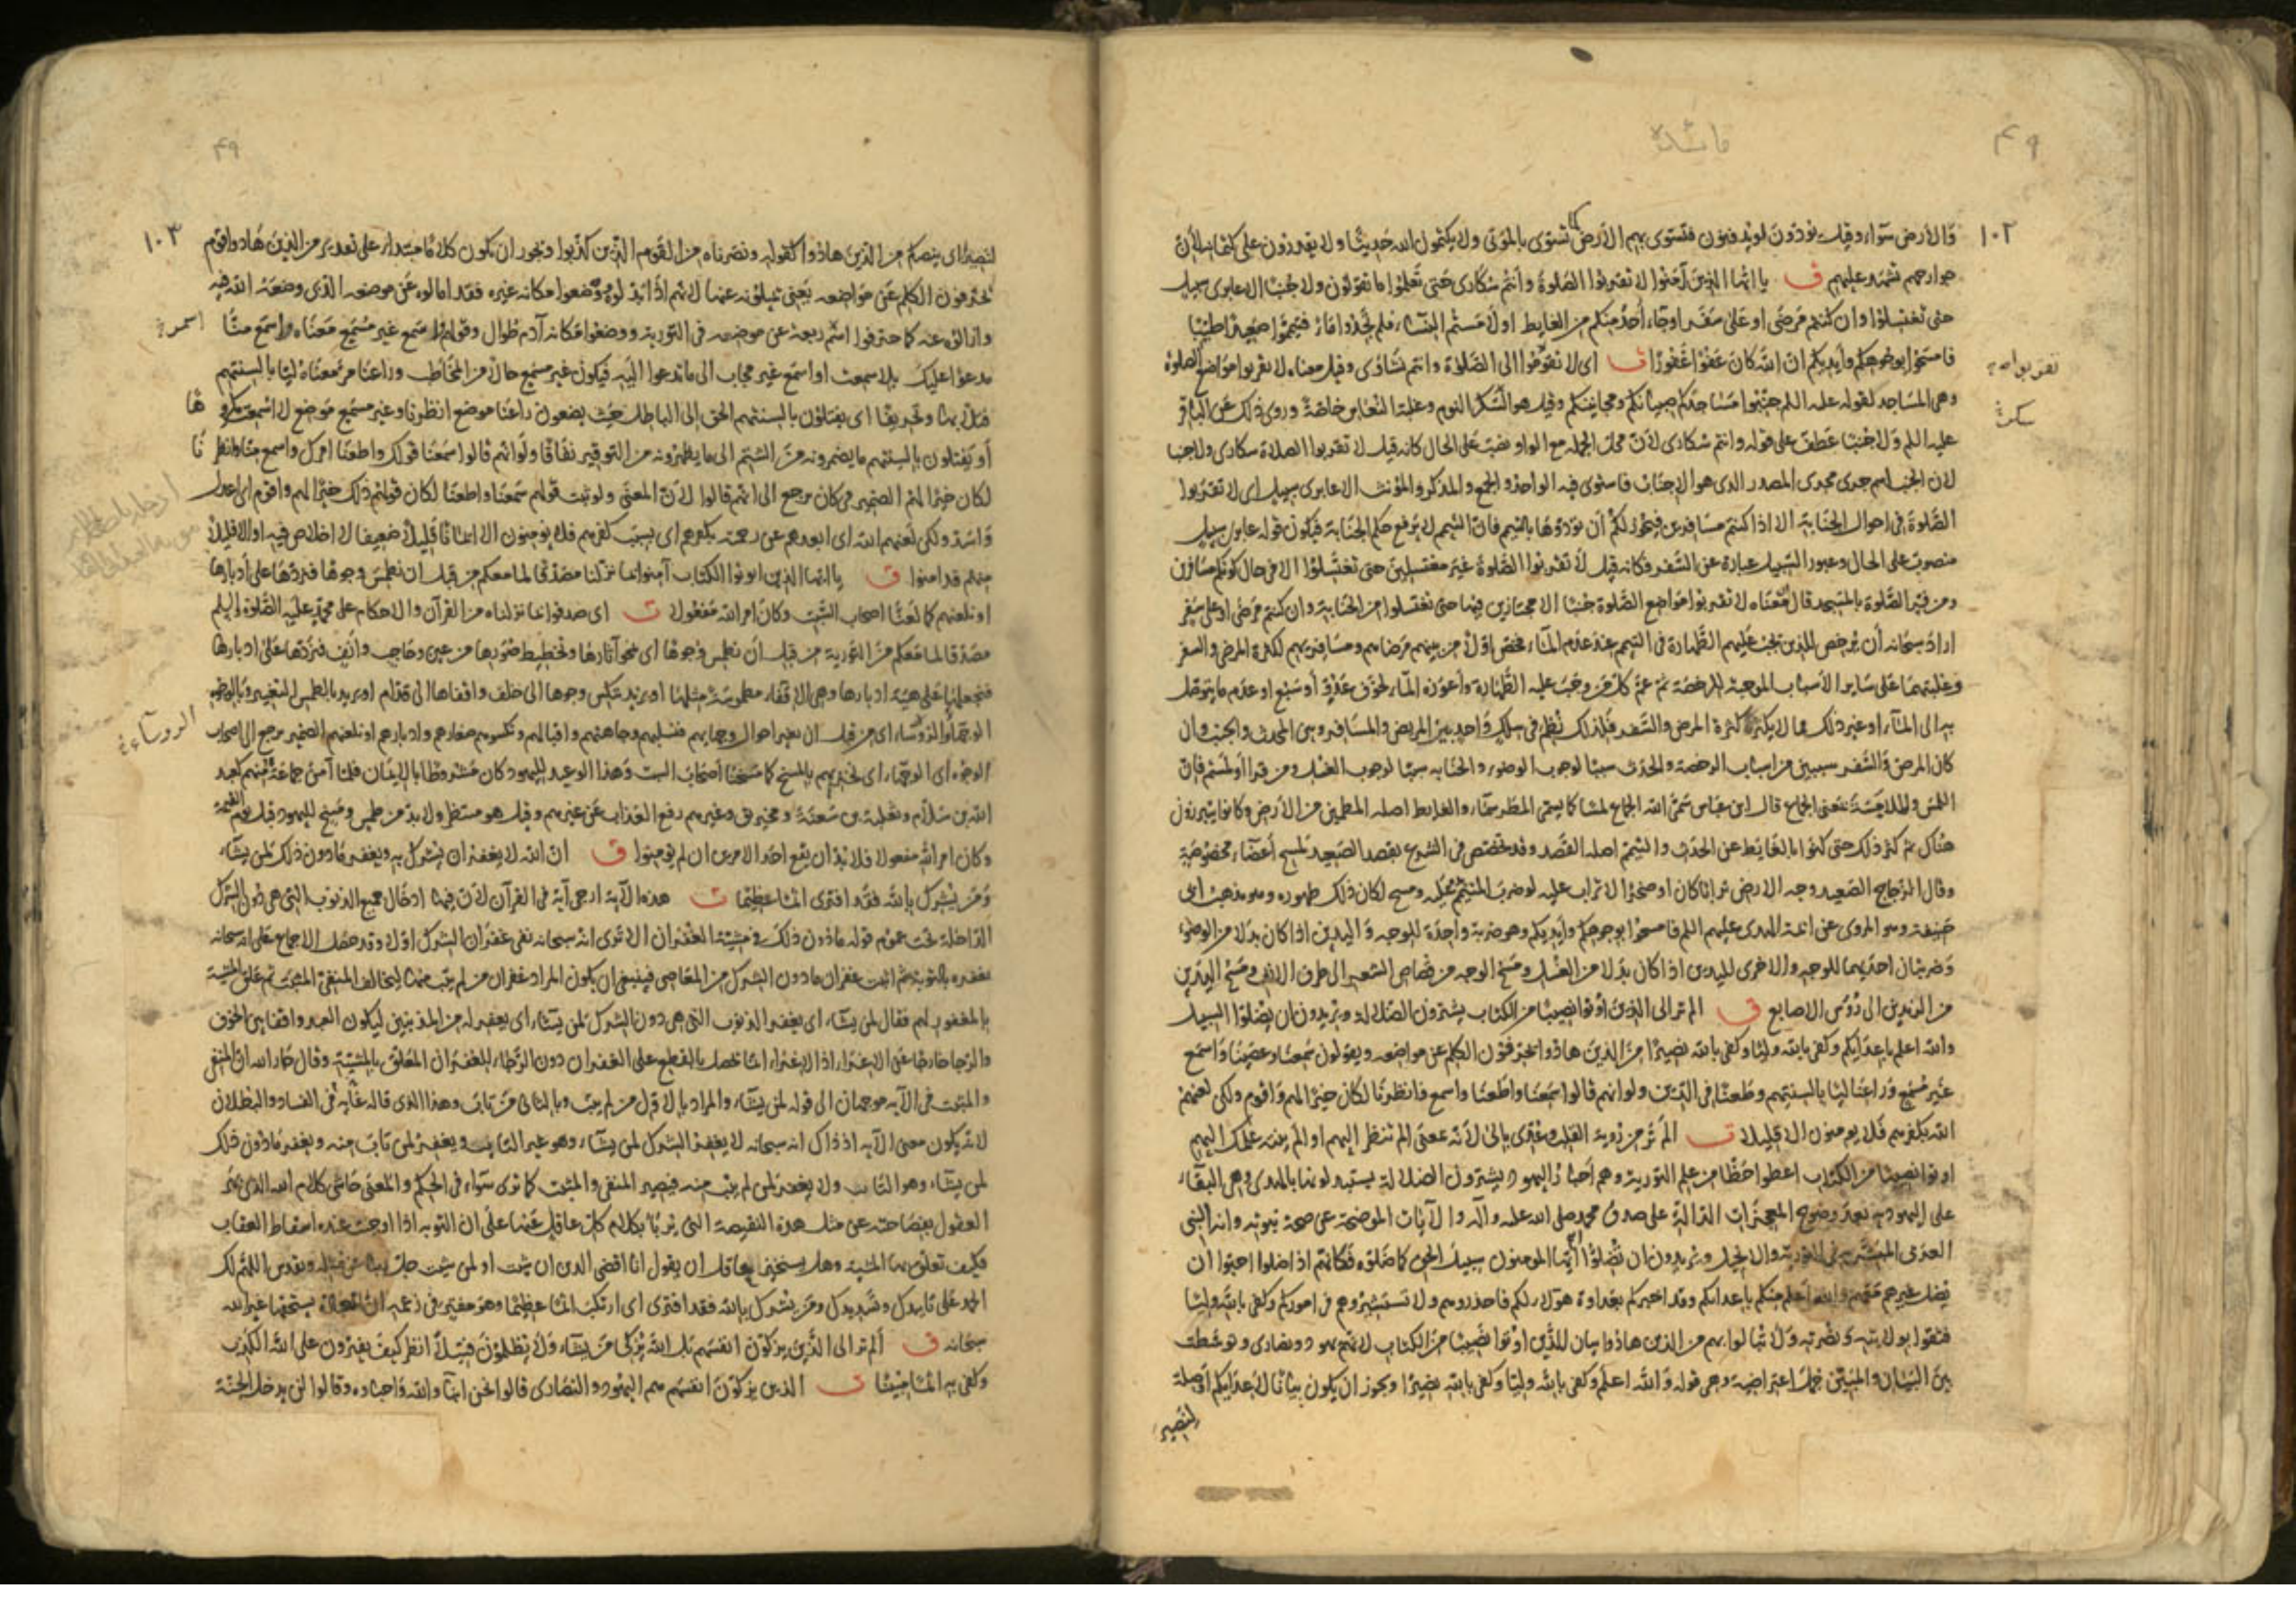 مائدة
۴۹
۱۰۲
والأرض سواء وقيل يودون لو يدفنون فتسوى بهم الأرض كما تسوى بالموتى ولا يكتمون الله حديثا ولا يقدرون على كتمانه لأن
جوارحهم تشهد عليهم ق يا ايها الذين آمنوا لا تقربوا الصلوة وأنتم سكارى حتى تعلموا ما تقولون ولا جنبا الا عابرى سبيل
حتى تغتسلوا وان كنتم مرضى او على سفر او جاء أحد منكم من الغايط او لامستم النساء فلم تجدوا ماء فتيمموا صعيدا طيبا
فامسحوا بوجوهكم وأيديكم ان الله كان عفوا غفورا ت اى لا تقوموا الى الصلاة وانتم نشاوى وقيل معناه لا تقربوا مواضع الصلوة
وهى المساجد لقوله عليه السلم جنبوا مساجدكم صبيانكم ومجانينكم وقيل هو سكر النوم وغلبة النعاس خاصة وروى ذلك عن الباقر
عليه السلم ولا جنبا عطف على قوله وانتم سكارى لأن محل الجملة مع الواو نصب على الحال كانه قيل لا تقربوا الصلاة سكارى ولا جنبا
لان الجنب اسم جرى مجرى المصدر الذى هو الاجناب فاستوى فيه الواحد والجمع والمذكر والمؤنث الا عابرى سبيل اى لا تقربوا
الصلوة فى احوال الجنابة الا اذا كنتم مسافرين فيجوز لكم أن تؤدوها بالتيمم فان التيمم لا يرفع حكم الجنابة فيكون قوله عابرى سبيل
منصوب على الحال وعبور السبيل عبارة عن السفر فكانه قيل لا تقربوا الصلوة غير مغتسلين حتى تغتسلوا الا فى حال كونكم مسافرين
ومن فسر الصلوة بالمسجد قال معناه لا تقربوا مواضع الصلوة جنبا الا مجتازين فيها حتى تغتسلوا من الجنابة وان كنتم مرضى او على سفر
اراد سبحانه أن يرخص للذين تجب عليهم الطهارة فى التيمم عند عدم الماء فخص اولا من بينهم مرضاهم ومسافريهم لكثرة المرض والسفر
وغلبتهما على ساير الأسباب الموجبة للرخصة ثم عم كل من وجب عليه الطهارة وأعوزه الماء لخوف عدو أو سبع او عدم ما يتوصل
به الى الماء او غير ذلك مما لا يكثر كثرة المرض والسفر فلذلك نظم فى سلك واحد بين المريض والمسافر وبين المحدث والجنب وان
كان المرض والسفر سببين من اسباب الرخصة والحدث سببا لوجوب الوضوء والجنابه سببا لوجوب الغسل ومن قرا أو لمستم فان
اللمس والملامسة بمعنى الجماع قال ابن عباس سمى الله الجماع لمسا كما يسمى المطر سماء والغايط اصله المطمئن من الأرض وكانوا يتبرزون
هناك ثم كثر ذلك حتى كنوا بالغايط عن الحدث والتيمم اصله القصد وقد تخصص فى الشرع بقصد الصعيد لمسح أعضاء مخصوصة
وقال الزجاج الصعيد وجه الارض ترابا كان او صخرا لا تراب عليه لو ضرب المتيمم عليه ومسح لكان ذلك طهوره وهو مذهب ابى
حنيفة وهو المروى عن ائمة الهدى عليهم السلم فامسحوا بوجوهكم وأيديكم وهو ضربة واحدة للوجه واليدين اذا كان بدلا من الوضوء
وضربتان احديهما للوجه والاخرى لليدين اذا كان بدلا من الغسل ومسح الوجه من قصاص الشعر الى طرف الانف ومسح اليدين
من الزندين الى رؤس الاصابع ق الم تر الى الذين أوتوا نصيبا من الكتاب يشترون الضلالة ويريدون ان تضلوا السبيل
والله اعلم باعدائكم وكفى بالله وليا وكفى بالله نصيرا من الذين هادوا يحرفون الكلم عن مواضعه ويقولون سمعنا وعصينا واسمع
غير مسمع وراعنا ليا بالسنتهم وطعنا فى الدين ولو انهم قالوا سمعنا واطعنا واسمع وانظرنا لكان خيرا لهم واقوم ولكن لعنهم
الله بكفرهم فلا يومنون الا قليلا ت الم تر من رؤية القلب وعدى بالى لأنه بمعنى الم تنظر اليهم او الم ينته علمك اليهم
اوتوا نصيبا من الكتاب اعطوا حظا من علم التورية وهم أحبار اليهود يشترون الضلالة يستبدلونها بالهدى وهى البقاء
على اليهودية بعد وضوح المعجزات الدالة على صدق محمد صلى الله عليه وآله والآيات الموضحة عن صحة نبوته وانه النبى
العربى المبشر به فى التورية والانجيل ويريدون ان تضلوا أيها المومنون سبيل الحق كما ضلوه فكانهم اذا ضلوا احبوا ان
يضل غيرهم معهم والله أعلم منكم باعدائكم وقد اخبركم بعداوة هؤلاء لكم فاحذروهم ولا تستشيروهم فى اموركم وكفى بالله وليا
فثقوا بولايته ونصرته ولا تبالوا بهم من الذين هادوا بيان للذين اوتوا نصيبا من الكتاب لانهم يهود ونصارى وتوسطت
بين البيان والمبين جمل اعتراضية وهى قوله والله اعلم وكفى بالله وليا وكفى بالله نصيرا ويجوز ان يكون بيانا لأعدائكم او صلة
لنصيرا
تقربوا صح
سكر
۴۹
۱۰۳
لنصيرا اى ينصركم من الذين هادوا كقوله ونصرناه من القوم الذين كذبوا ويجوز ان يكون كلاما مبتداء على تقدير من الذين هادوا قوم
يحرفون الكلم عن مواضعه يعنى يميلونه عنها لانهم اذا بدلوه وضعوا مكانه غيره فقد امالوه عن موضعه الذى وضعه الله فيه
وازالوه عنه كما حرفوا اسمر ربعة عن موضعه فى التورية ووضعوا مكانه آدم طوال وقولهم اسمع غير مسمع معناه اسمع منا
مدعوا عليك بلا سمعت او اسمع غير مجاب الى ما تدعوا اليه فيكون غير مسمع حال من المخاطب وراعنا مر معناه ليا بالسنتهم
فتلا بها وتحريفا اى يفتلون بالسنتهم الحق الى الباطل حيث يضعون راعنا موضع انظرنا وغير مسمع موضع لا اسمعت مكروها
أو يفتلون بالسنتهم ما يضمرونه من الشتم الى ما يظهرونه من التوقير نفاقا ولو انهم قالوا سمعنا قولك واطعنا امرك واسمع منا وانظرنا
لكان خيرا لهم الضمير فى كان يرجع الى انهم قالوا لان المعنى ولو ثبت قولهم سمعنا واطعنا لكان قولهم ذلك خيرا لهم واقوم اى اعدل
واسد ولكن لعنهم الله اى ابعدهم عن رحمته بكفرهم اى بسبب كفرهم فلا يومنون الا ايمانا قليلا ضعيفا لا اخلاص فيه او الا قليلا
منهم قد امنوا ق يا ايها الذين اوتوا الكتاب آمنوا بما نزلنا مصدقا لما معكم من قبل ان نطمس وجوها فنردها على أدبارها
او نلعنهم كما لعنا اصحاب السبت وكان امر الله مفعولا ت اى صدقوا بما نزلناه من القرآن والاحكام على محمد عليه الصلوة والسلم
مصدقا لما معكم من التورية من قبل ان نطمس وجوها اى نمحو آثارها وتخطيط صورها من عين وحاجب وانف فنردها على ادبارها
فنجعلها على هيئة ادبارها وهى الاقفاء مطموسة مثلها او يريد ننكس وجوها الى خلف واقفاها الى قدام او يريد بالطمس التغيير وبالوجوه
الوجهاء والرؤساء اى من قبل ان نغير احوال وجهايهم فنسلبهم وجاهتهم واقبالهم ونكسوهم صغارهم وادبارهم او نلعنهم الضمير يرجع الى اصحاب
الوجوه اى الوجهاء اى نخزيهم بالمسخ كما مسخنا أصحاب السبت وهذا الوعيد لليهود كان مشروطا بالايمان فلما آمن جماعة منهم كعبد
الله بن سلام وثعلبة بن سعنة ومخيريق وغيرهم رفع العذاب عن غيرهم وقيل هو منتظر ولا بد من طمس ومسخ لليهود قبل يوم القيمة
وكان امر الله مفعولا فلا بد ان يقع احد الامرين ان لم يومنوا ق ان الله لا يغفر ان يشرك به ويغفر ما دون ذلك لمن يشاء
ومن يشرك بالله فقد افترى اثما عظيما ت هذه الآية ارجى آية فى القرآن لان فيها ادخال جميع الذنوب التى هى دون الشرك
الداخلة تحت عموم قوله ما دون ذلك فى مشيئة الغفران الا ترى انه سبحانه نفى غفران الشرك اولا وقد حصل الاجماع على انه سبحانه
يغفره بالتوبة ثم اثبت غفران ما دون الشرك من المعاصى فينبغى ان يكون المراد غفران من لم يتب منها ليخالف المنفى المثبت ثم علق المشيئة
بالمغفور لهم فقال لمن يشاء اى يغفر الذنوب التى هى دون الشرك لمن يشاء اى يغفر له من المذنبين ليكون العبد واقفا بين الخوف
والرجا خارجا عن الاغراء اذ الاغراء انما يحصل بالقطع على الغفران دون الرجاء للغفران المعلق بالمشيئة وقال جار الله ان المنفى
والمثبت فى الآية موجهان الى قوله لمن يشاء والمراد بالاول من لم يتب وبالثانى من تاب وهذا الذى قاله غاية فى الفساد والبطلان
لانه يكون معنى الآية اذ ذاك انه سبحانه لا يغفر الشرك لمن يشاء وهو غير التايب ويغفر لمن تاب منه ويغفر ما دون ذلك
لمن يشاء وهو التائب ولا يغفر لمن لم يتب منه فيصير المنفى والمثبت كما ترى سواء فى الحكم والمعنى حاشى كلام الله الذى بهر
العقول بفصاحته عن مثل هذه النقيصة التى يربا بكلام كل عاقل عنها على ان التوبه اذا اوجبت عنده اسقاط العقاب
فكيف تعلق بها المشية وهل يستحسن عاقل ان يقول انا اقضى الدين ان شئت او لمن شئت
الحمد على تاييدك وتسديدك ومن يشرك بالله فقد افترى اى ارتكب اثما عظيما وهو مفتر فى زعمه ان العبادة يستحقها غير الله
سبحانه ق ألم تر الى الذين يزكون انفسهم بل الله يزكى من يشاء ولا يظلمون فتيلا انظر كيف يفترون على الله الكذب
وكفى به اثما مبينا ت الذين يزكون انفسهم هم اليهود والنصارى قالوا نحن ابناء الله واحباءه وقالوا لن يدخل الجنة
اسمر
الروساء